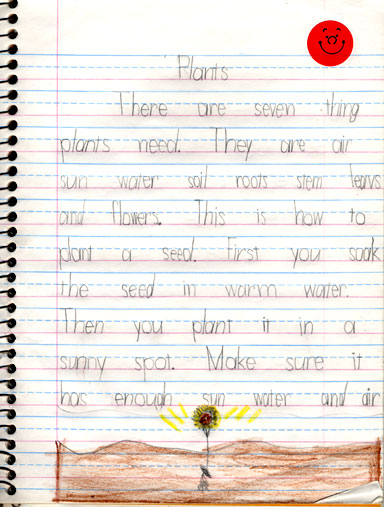 Plants
There are seven thing
plants need. They are air
sun water soil roots stem leavs
and flowers. This is how to
plant a seed. First you soak
the seed in warm water.
Then you plant it in a
sunny spot. Make sure it
has enough sun water and air